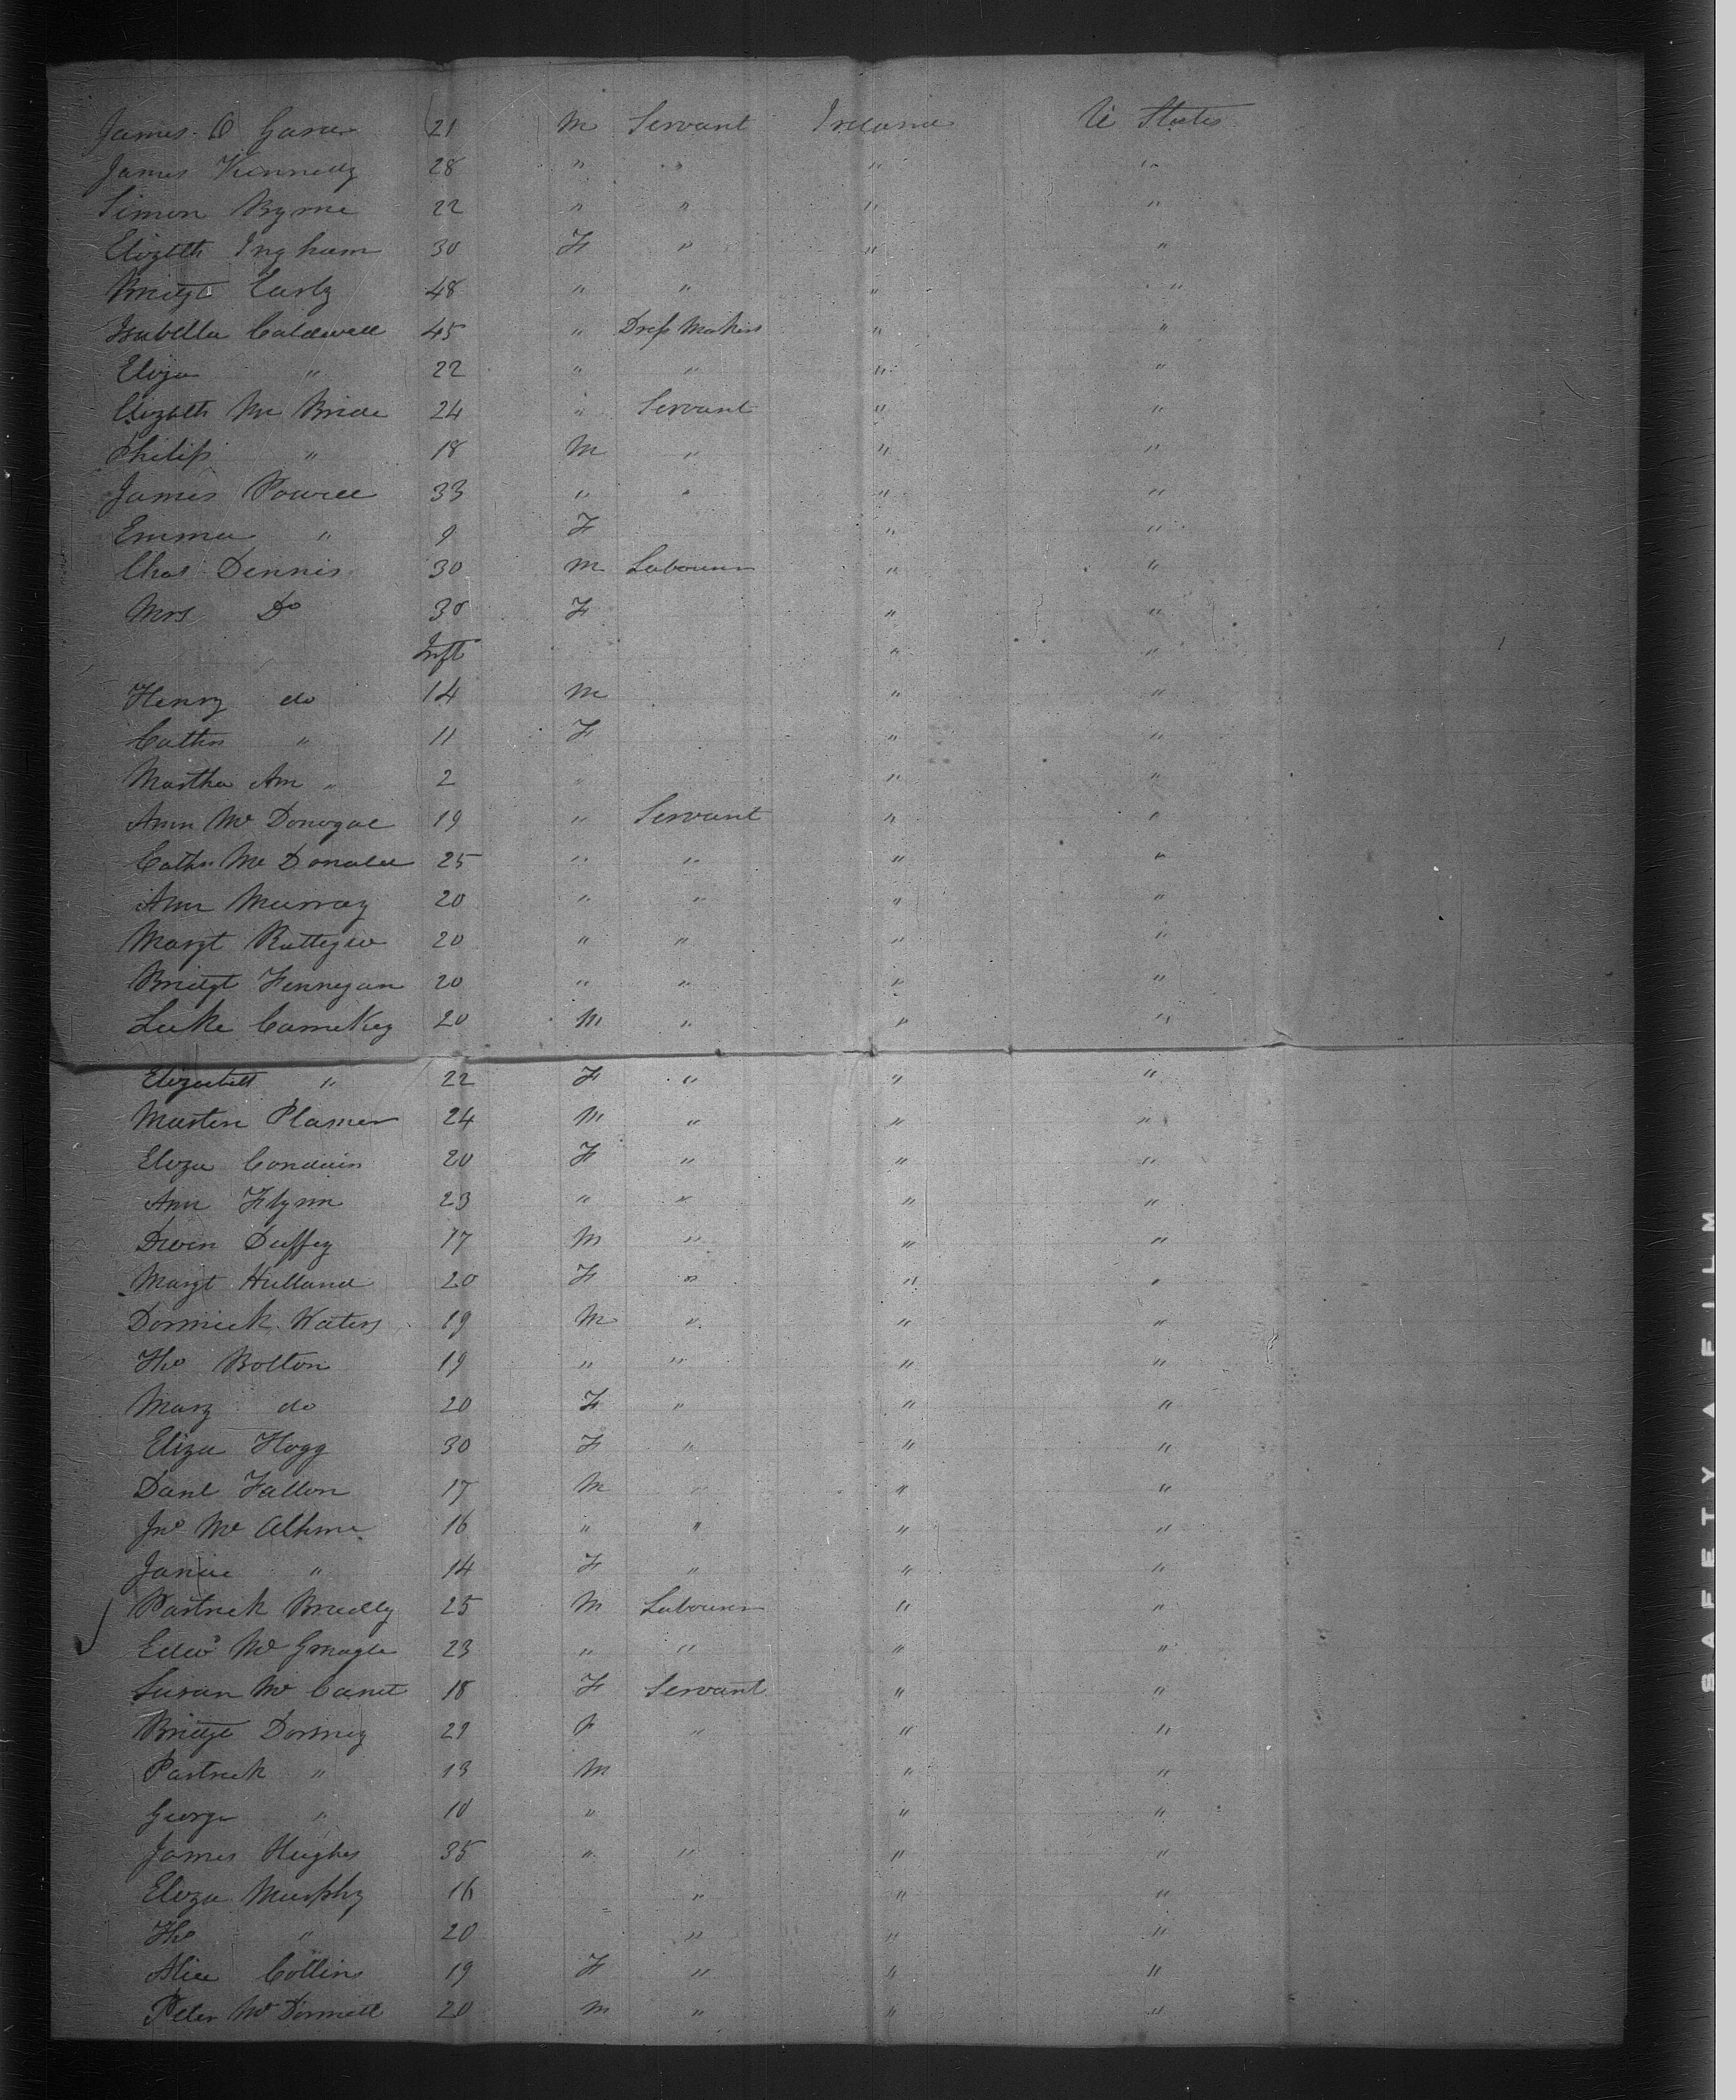 James O Gara 21 M Servant Ireland U States
James Kennedy 28 " " " "
Simon Byrne 22 " " " "
Elizbth Ingham 30 F " " "
Bridgt Early 48 " " " "
Isabella Caldwell 45 " Dress Makers " "
Eliza " 22 " " " "
Elizbth Mc Bride 24 " Servant " "
Philip " 18 M " " "
James Powell 33 " " " "
Emma " 9 F " "
Chas Dennis 30 M Labourer " "
Mrs Do 30 F " "
Inft " "
Henry do 14 M " "
Cathn " 11 F " "
Martha Ann " 2 " " "
Ann Mc Donogal 19 " Servant " "
Cathn Mc Donald 25 " " " "
Ann Murray 20 " " " "
Margt 20 " " " "
Bridgt Fennegan 20 " " " "
Luke 20 M " " "
Elizabeth " 22 F " " "
Martin Plamer 24 M " " "
Eliza 20 F " " "
Ann Flynn 23 " " " "
Duffey 17 M " " "
Margt Hulland 20 F " " "
Dominick Waters 19 M " " "
Tho Bolton 19 " " " "
Mary do 20 F " " "
Eliza Hogg 30 F " " "
Danl Fallon 17 M " " "
Jno Mc 16 " " " "
Janie " 14 F " " "
Patrick Bradley 25 M Labourer " "
Edwd Mc 23 " " " "
Susan Mc 18 F Servant " "
Bridgt 29 F " " "
Patrick " 13 M " "
George " 10 " " "
James Hughes 35 " " " "
Eliza Murphy 16 " " "
Tho " 20 " " "
Alice Collins 19 F " " "
Peter Mc Donnell 20 M " " "
SAFETY A FILM